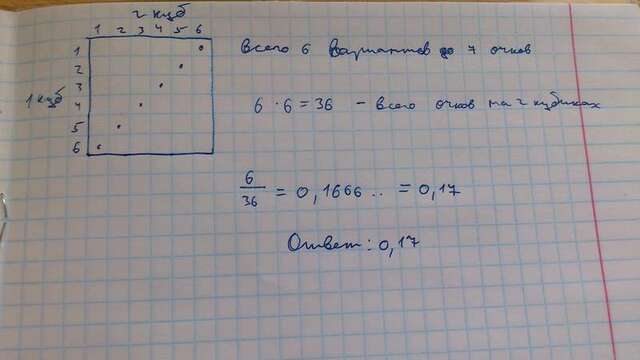 2 куб
1 2 3 4 5 6
1
2
3
1 куб
4
5
6
Всего 6 вариантов до 7 очков
6 · 6 = 36 - всего очков на 2 кубиках
6
36
= 0,1666.. = 0,17
Ответ: 0,17